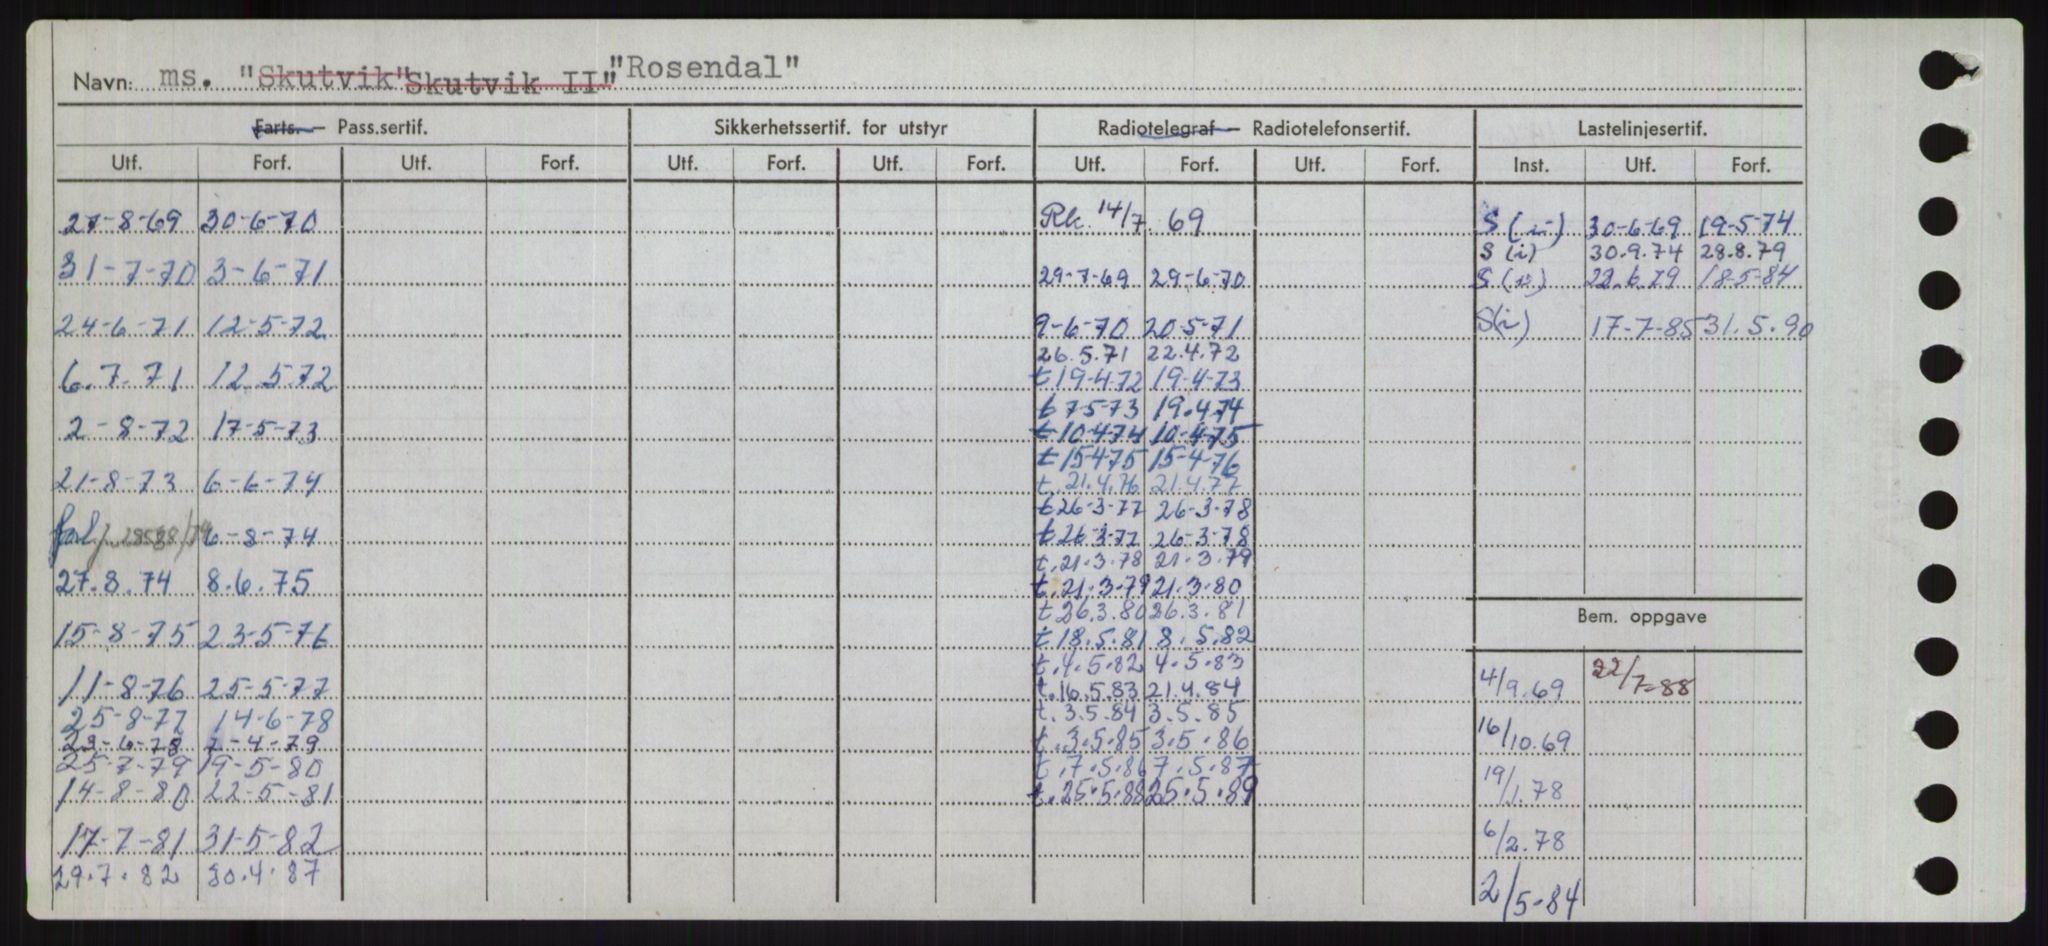 Navn: ms. "Skutvik" Skutvik II" "Rosendal"
Farts. — Pass.sertif. Sikkerhetssertif. for utstyr Radiotelegraf — Radiotelefonsertif. Lastelinjesertif.
Utf. Forf. Utf. Forf. Utf. Forf. Utf. Forf. Utf. Forf. Utf. Forf. Inst. Utf. Forf.
27-8-69 30-6-70
31-7-70 3-6-71
24-6-71 12-5-72
6.7.71 12.5.72
2-8-72 17-5-73
21-8-73 6-6-74
6-8-74
27.8.74 8.6.75
15-8-75 23-5-76
11-8-76 25-5-77
25-8-77 14-6-78
23-6-78 7-4-79
25-7-79 19-5-80
14-8-80 22-5-81
17-7-81 31-5-82
29.7.82 30.4.87
Rk. 14/7. 69
29-7-69 29-6-70
9-6-70 20-5-71
26.5.71 22.4.72
t 19-4-72 19-4-73
t 7-5-73 19.4.74
t 10-4-74 10-4-75
t 15-4-75 15-4-76
t. 21.4.76 21.4.77
t 26-3-77 26-3-78
t 26-3-77 26-3-78
t. 21.3.78 21.3.79
t. 21.3.79 21.3.80
t 26.3.80 26.3.81
t 18.5.81 8.5.82
t. 4.5.82 4.5.83
t. 16.5.83 21.4.84
t. 3.5.84 3.5.85
t. 3.5.85 3.5.86
t. 7.5.86 7.5.87
t. 25.5.88 25.5.89
S (i) 30-6-69 19-5-74
S (i) 30.9.74 28.8.79
S (i) 22.6.79 18-5-84
S(i) 17-7-85 31.5.90
Bem. oppgave
4/9.69 22/7-88
16/10.69
19/1.78
6/2.78
2/5-84